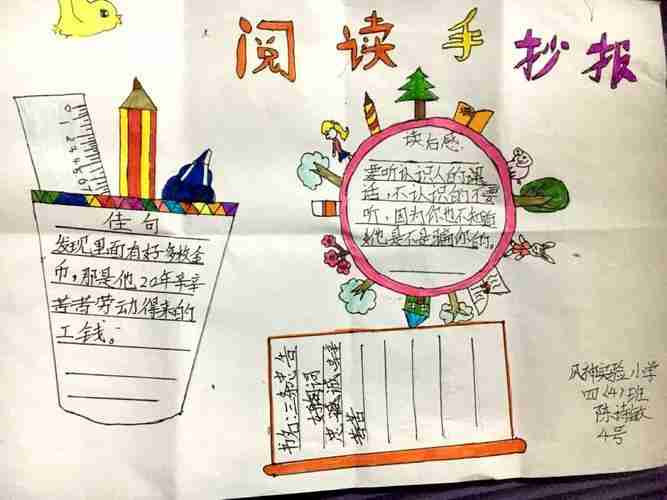 阅读手抄报
佳句
发现里面有好多枚金
币，那是他20年辛辛
苦苦劳动得来的
工钱。
读后感：
要听认识人的
话，不认识的不要
听，因为你也不知道
他是不是骗你的。
书名：三条忠告
好词
忠诚
四（4）班
4号